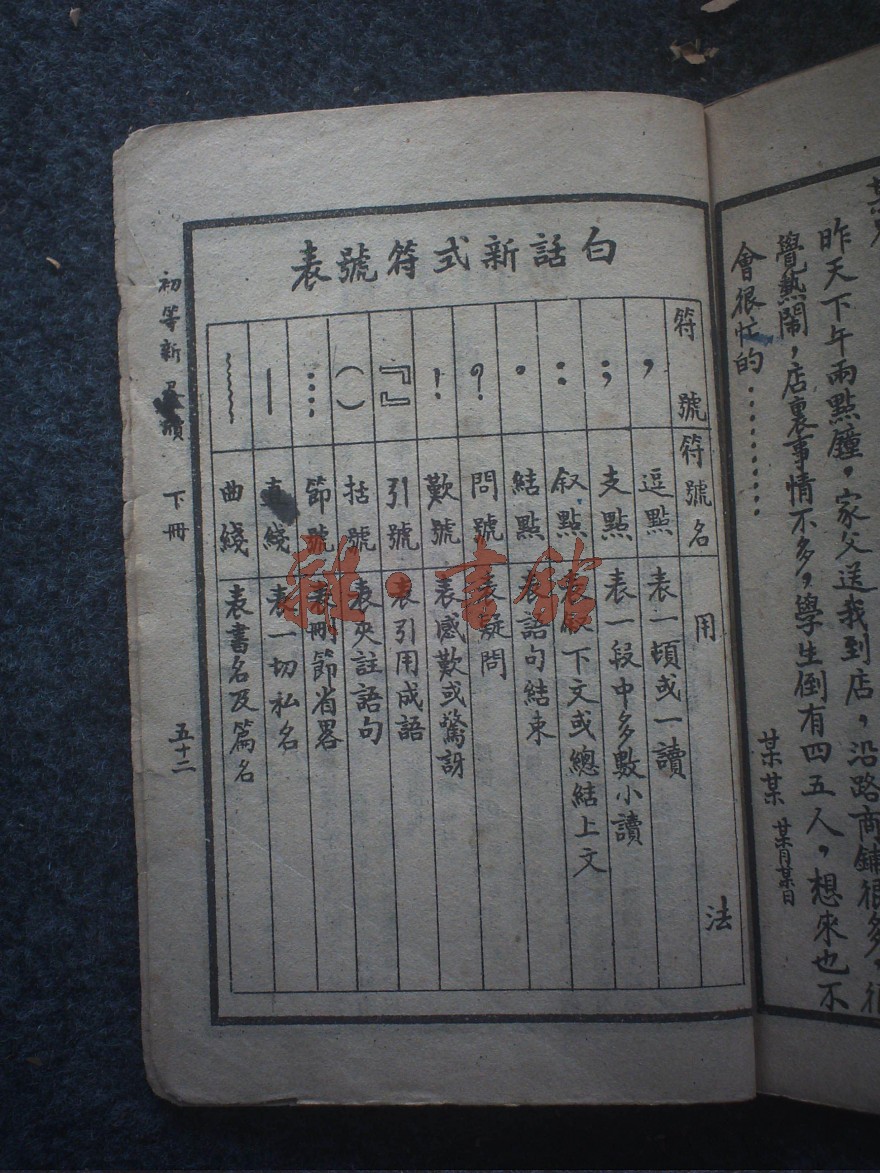 昨天下午兩點鐘，家父送我到店，沿路商鋪很多，很
覺熱鬧，店裏事情不多，學生倒有四五人，想來也不
會很忙的…………
某某 某月某日
白話新式符號表
符號 符號名 用法
， 逗點 表一頓或一讀
； 支點 表一段中多數小讀
： 叙點 下文或總結上文
． 結點 表語句結束
？ 問號 表疑問
！ 歎號 表感歎或驚訝
『』 引號 表引用成語
（） 括號 表夾註語句
…… 節號 表刪節省畧
— 直綫 表一切私名
﹏﹏ 曲綫 表書名及篇名
初等新 牘 下冊 五十二
雜·書館